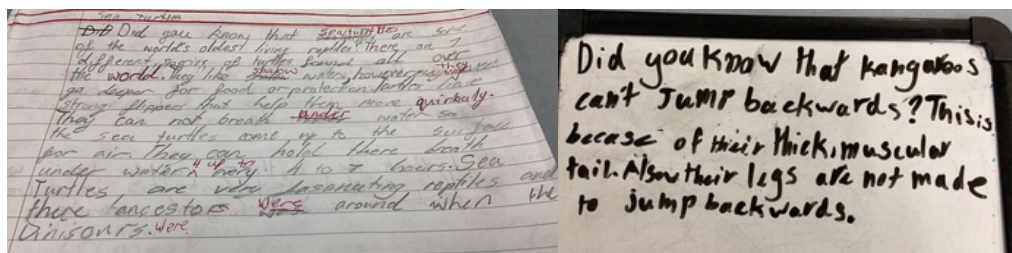 Sea turtles
Did Did you know that sea turtles are some
of the world's oldest living reptiles? There are 7
different species of turtles found all over
the world. They like shalow water, however they might
go deeper for food or protection. Turtles have
strong flippers that help them move quirkaly.
They can not breath under water so
the sea turtles come up to the surface
for air. They can hold there breath
under water up to 4 to 7 hours. Sea
Turtles are very fasanating reptiles and
there ancestors were around when the
Dinisours. were
Did you know that kangaroos
can't Jump backwards? This is
becase of their thick, muscular
tail. Also their legs are not made
to jump backwards.